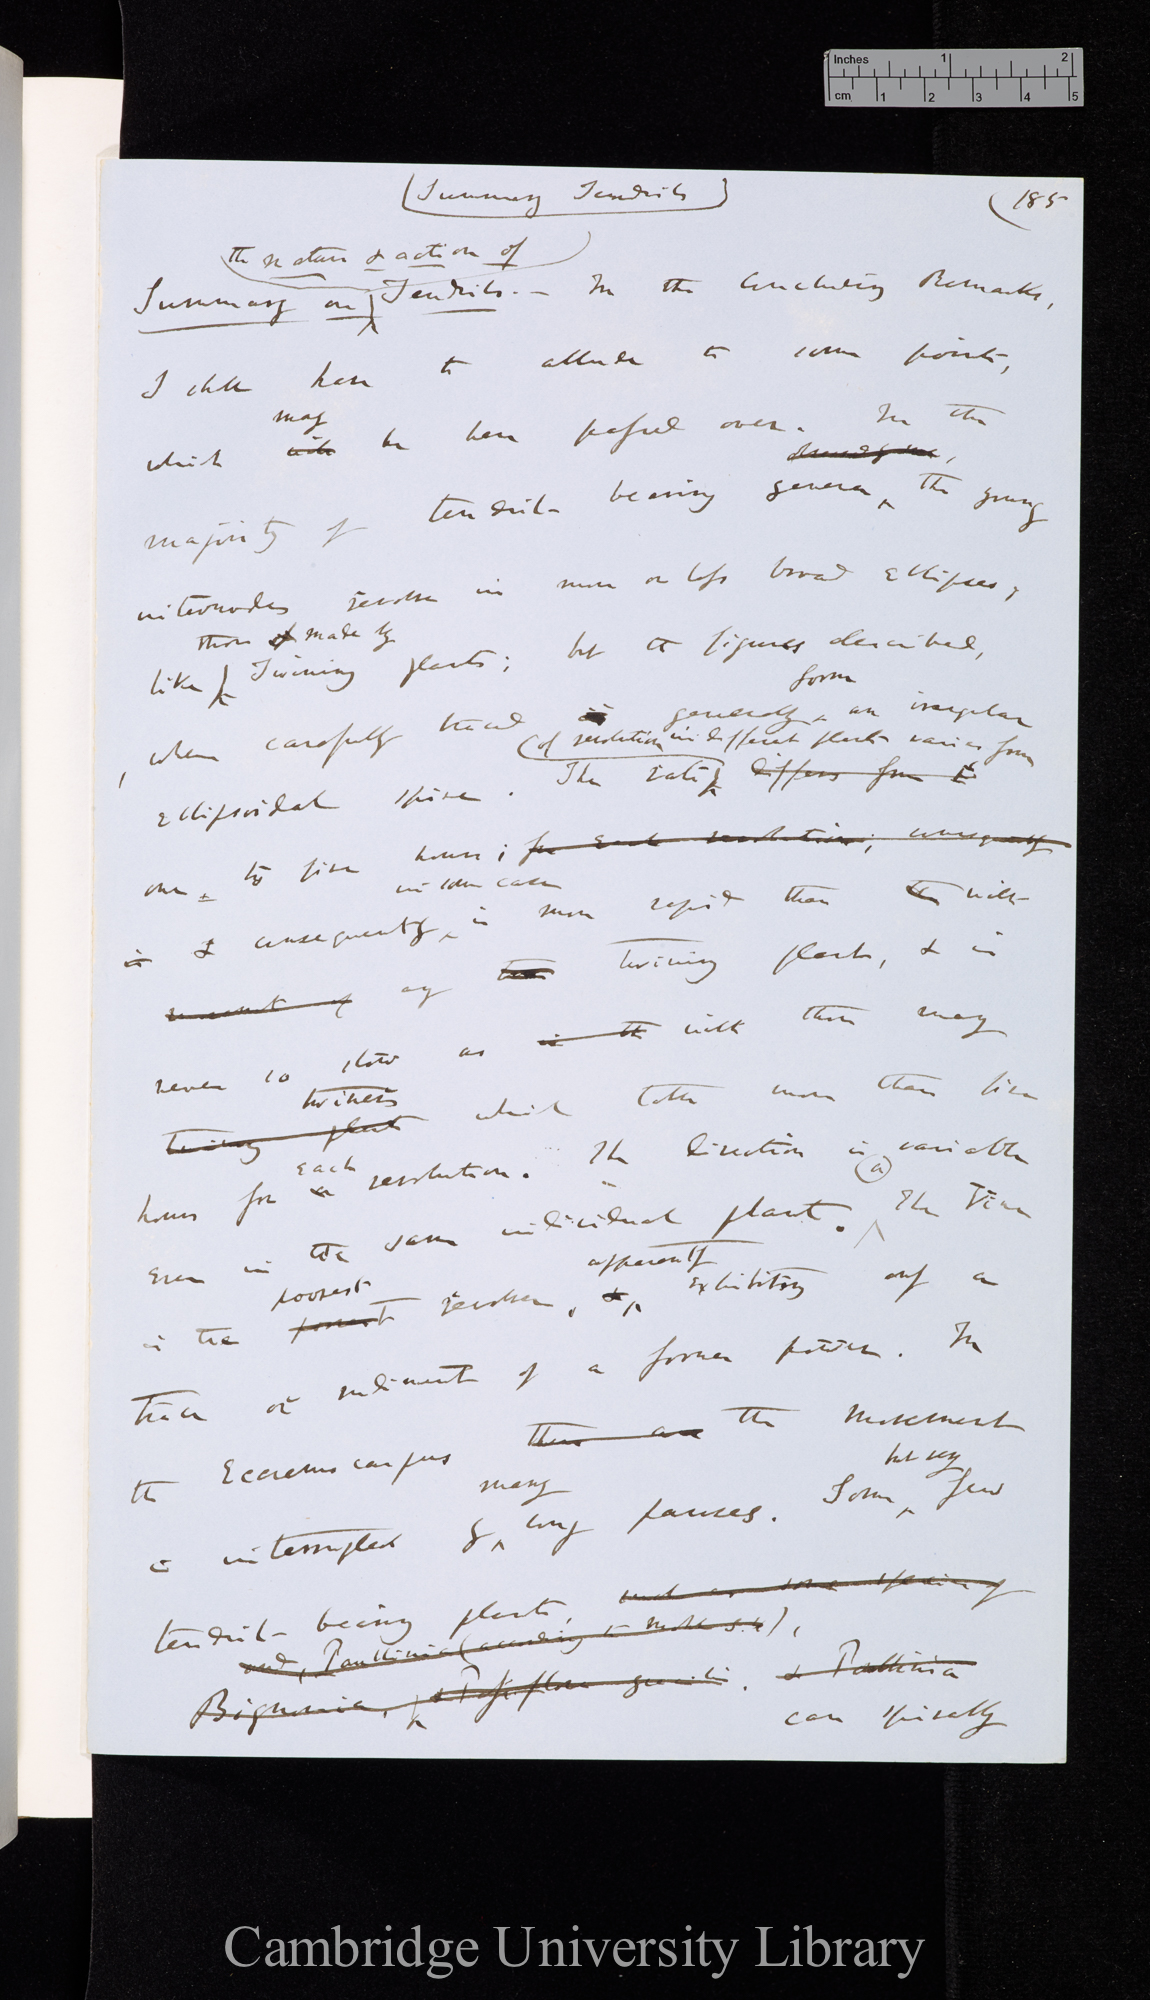 Inches 1 2
cm 1 2 3 4 5
(Summary Tendrils)
(185
the nature & action of
Summary on Tendrils.— In the Concluding Remarks,
I shall have to allude to some points,
may
which will be here passed over. In the
majority of tendril-bearing genera, the young
internodes revolve in more or less broad ellipses,
those of made by
like Twining plants; but the figures described,
form
when carefully traced is generally an irregular
(of revolution in different plants varies from
ellipsoidal spire. The rate differs from
one to five hours; for each revolution; consequently
in some cases
is & consequently is more rapid than with
any twining plants, & is
never so slow as in the with those many
twiners
twining plants which take more than five
each
hours for a revolution. The direction is variable
(a)
even in the same individual plant. The Vine
poorest apparently
in the poorest revolver, & exhibiting only a
trace or rudiment of a former power. In
the Eccremocarpus there are the movement
many but very
is interrupted by long pauses. Some few
tendril-bearing plants, such as some species of
and, Paullinia (according to Mohl s. 4),
Bignonia, & Passiflora gracilis. & Paullinia
can spirally
Cambridge University Library